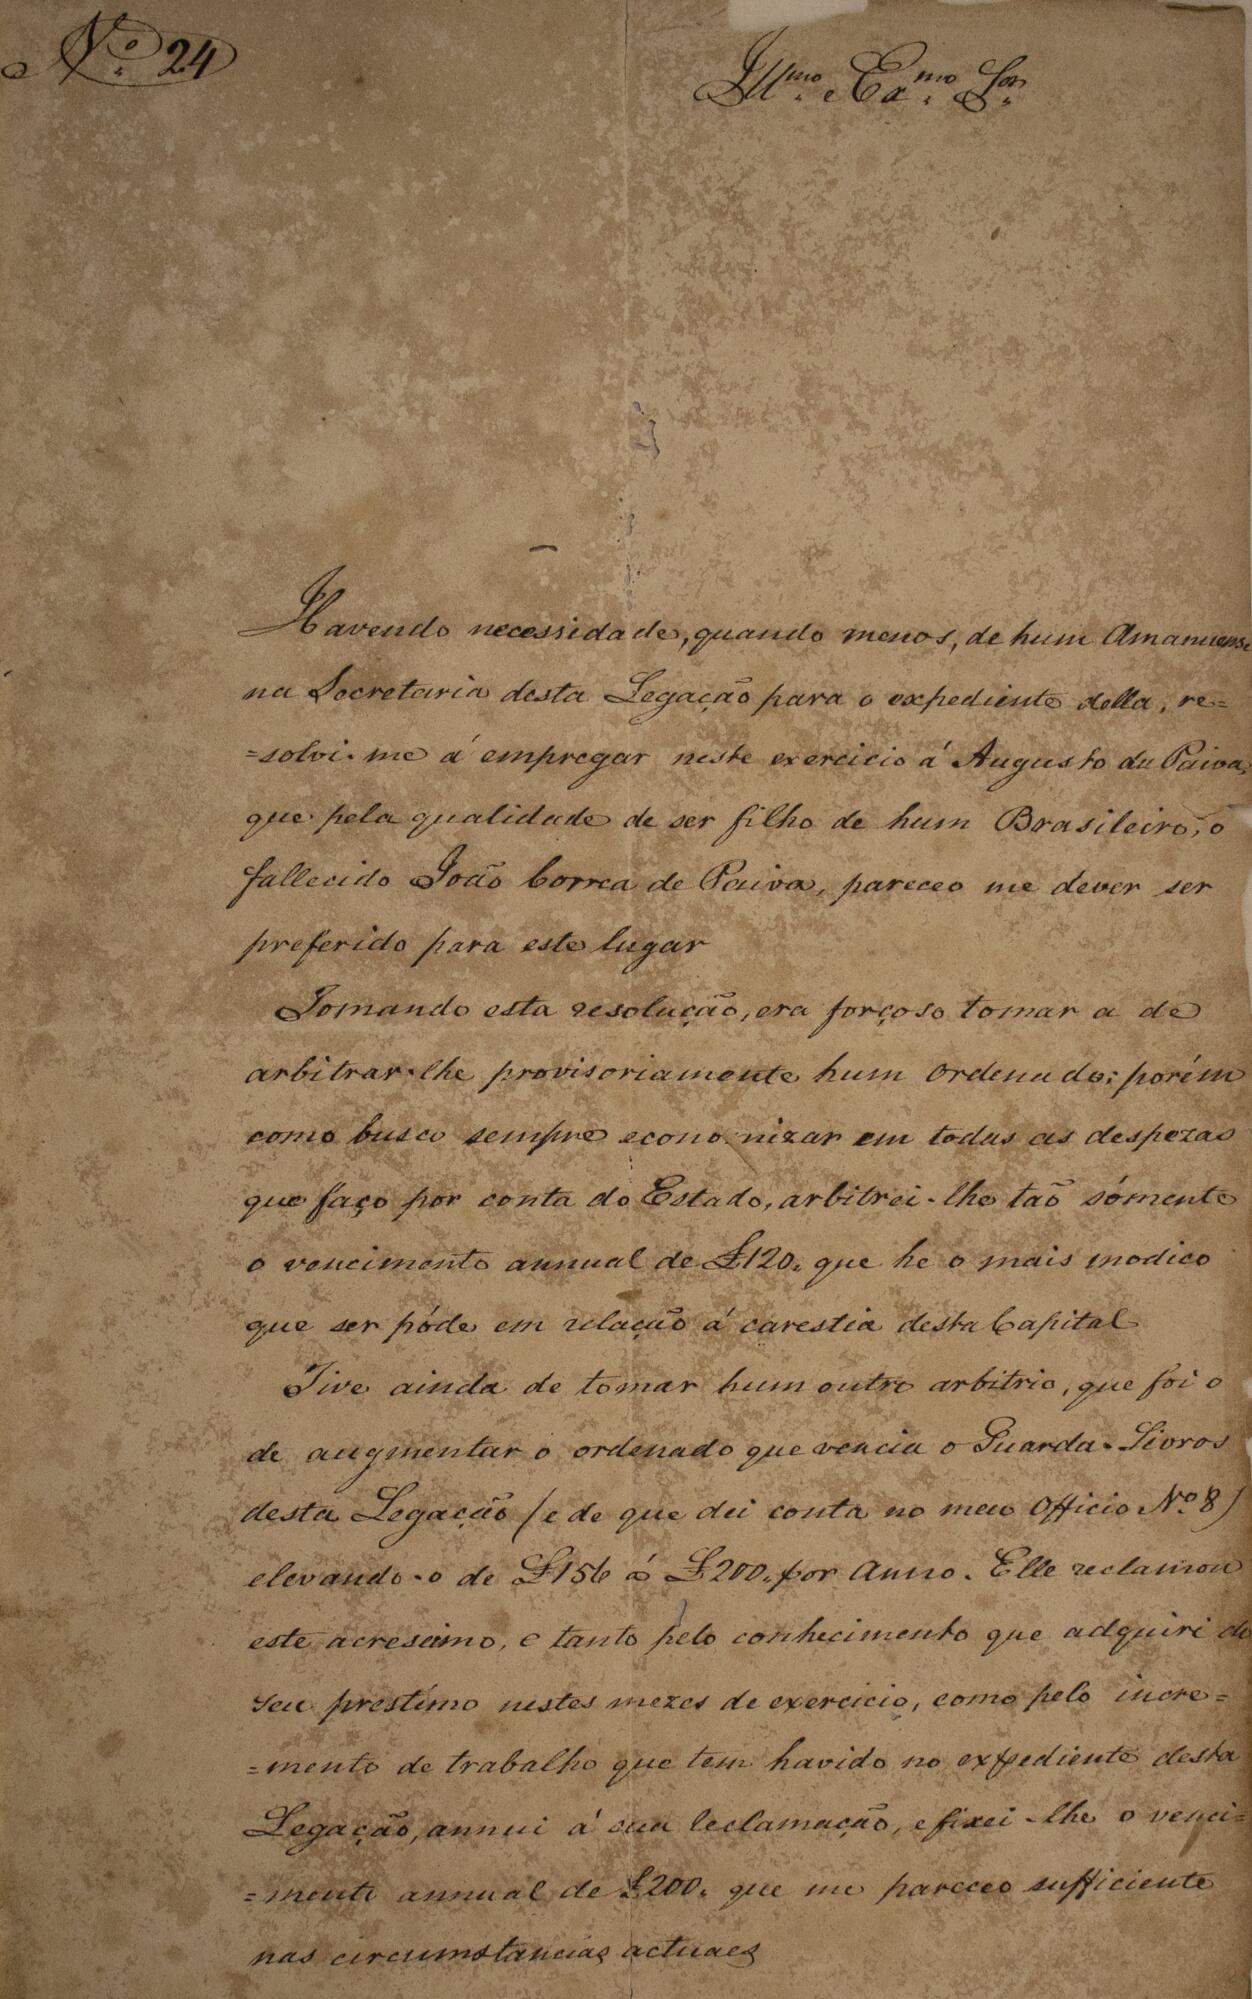 Nº 24
Illmo. e Exmo. Sor.
Havendo necessidade, quando menos, de hum Amanuense
na Secretaria desta Legação para o expediente della, re=
=solvi-me á empregar neste exercicio á Augusto de Paiva,
que pela qualidade de ser filho de hum Brasileiro, o
fallecido João Correa de Paiva, pareceo me dever ser
preferido para este lugar
Tomando esta resolução, era forçoso tomar a de
arbitrar-lhe provisoriamente hum Ordenado; porém
como busco sempre economizar em todas as despezas
que faço por conta do Estado, arbitrei-lhe taõ sómente
o vencimento annual de £120. que he o mais modico
que ser póde em relação á carestia desta Capital
Tive ainda de tomar hum outro arbitrio, que foi o
de augmentar o ordenado que vencia o Guarda-Livros
desta Legação (e de que dei conta no meu Officio Nº 8)
elevando-o de £156 á £200. por Anno. Elle reclamou
este acrescimo, e tanto pelo conhecimento que adquiri do
seu prestimo nestes mezes de exercicio, como pelo incre=
=mento de trabalho que tem havido no expediente desta
Legação, annui á sua reclamação, e fixei-lhe o venci=
=mento annual de £200. que me pareceo sufficiente
nas circumstancias actuaes